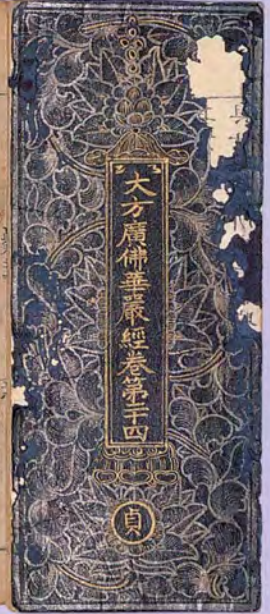 大方廣佛華嚴經卷第三十四
貞